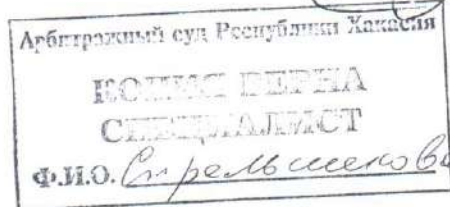 Арбитражный суд Республики Хакасия
КОПИЯ ВЕРНА
СПЕЦИАЛИСТ
Ф.И.О.